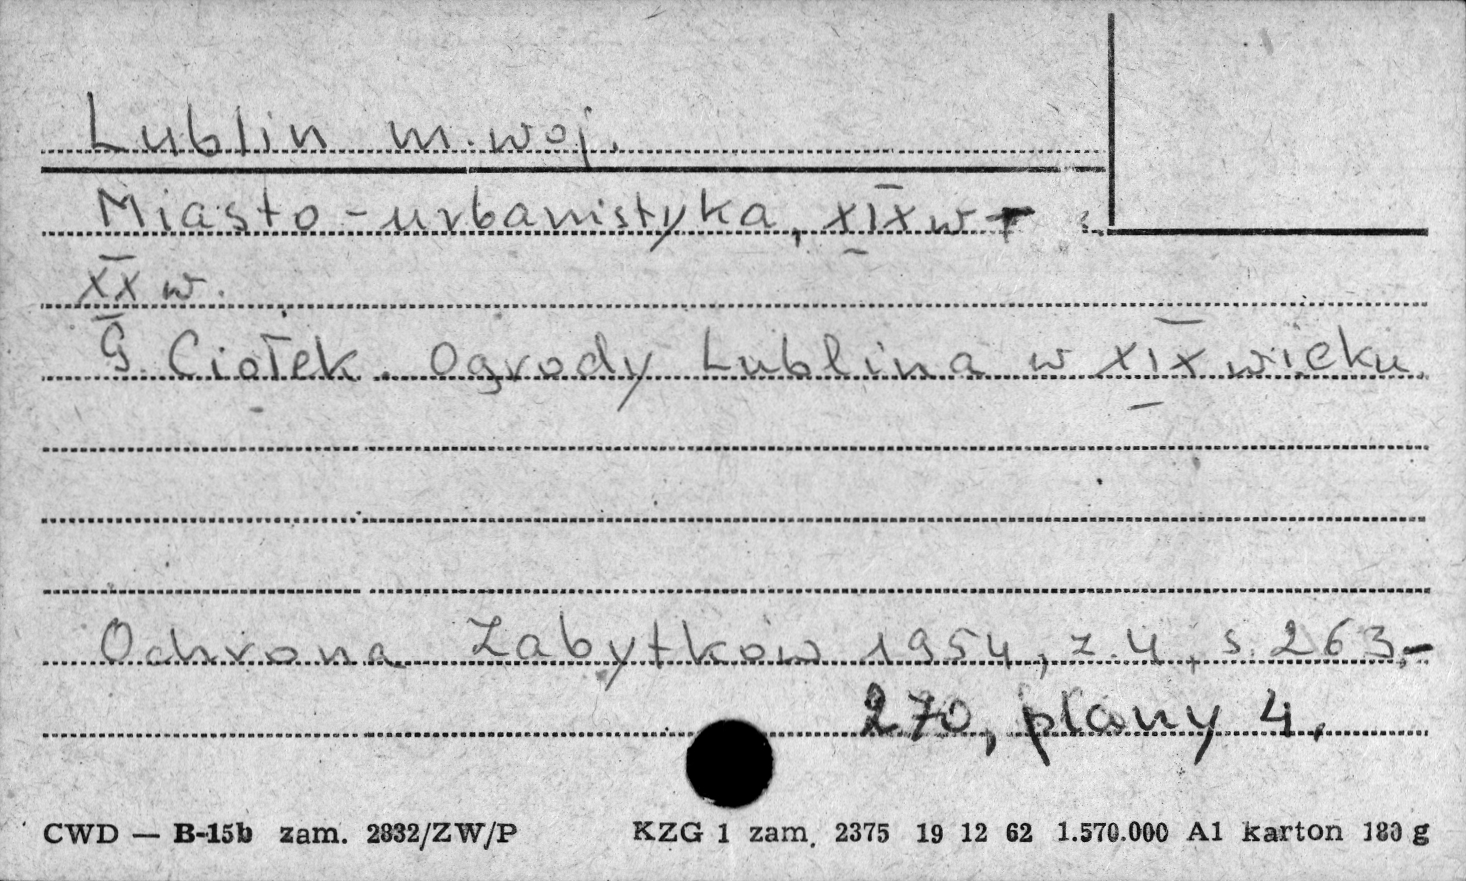 Lublin m. woj.
Miasto - urbanistyka, XIX w -
XX w.
G. Ciołek. Ogrody Lublina w XIX wieku.
Ochrona Zabytków 1954, z. 4, s. 263.-
270, plany 4.
CWD — B-15b zam. 2832/ZW/P KZG 1 zam. 2375 19 12 62 1.570.000 A1 karton 180 g